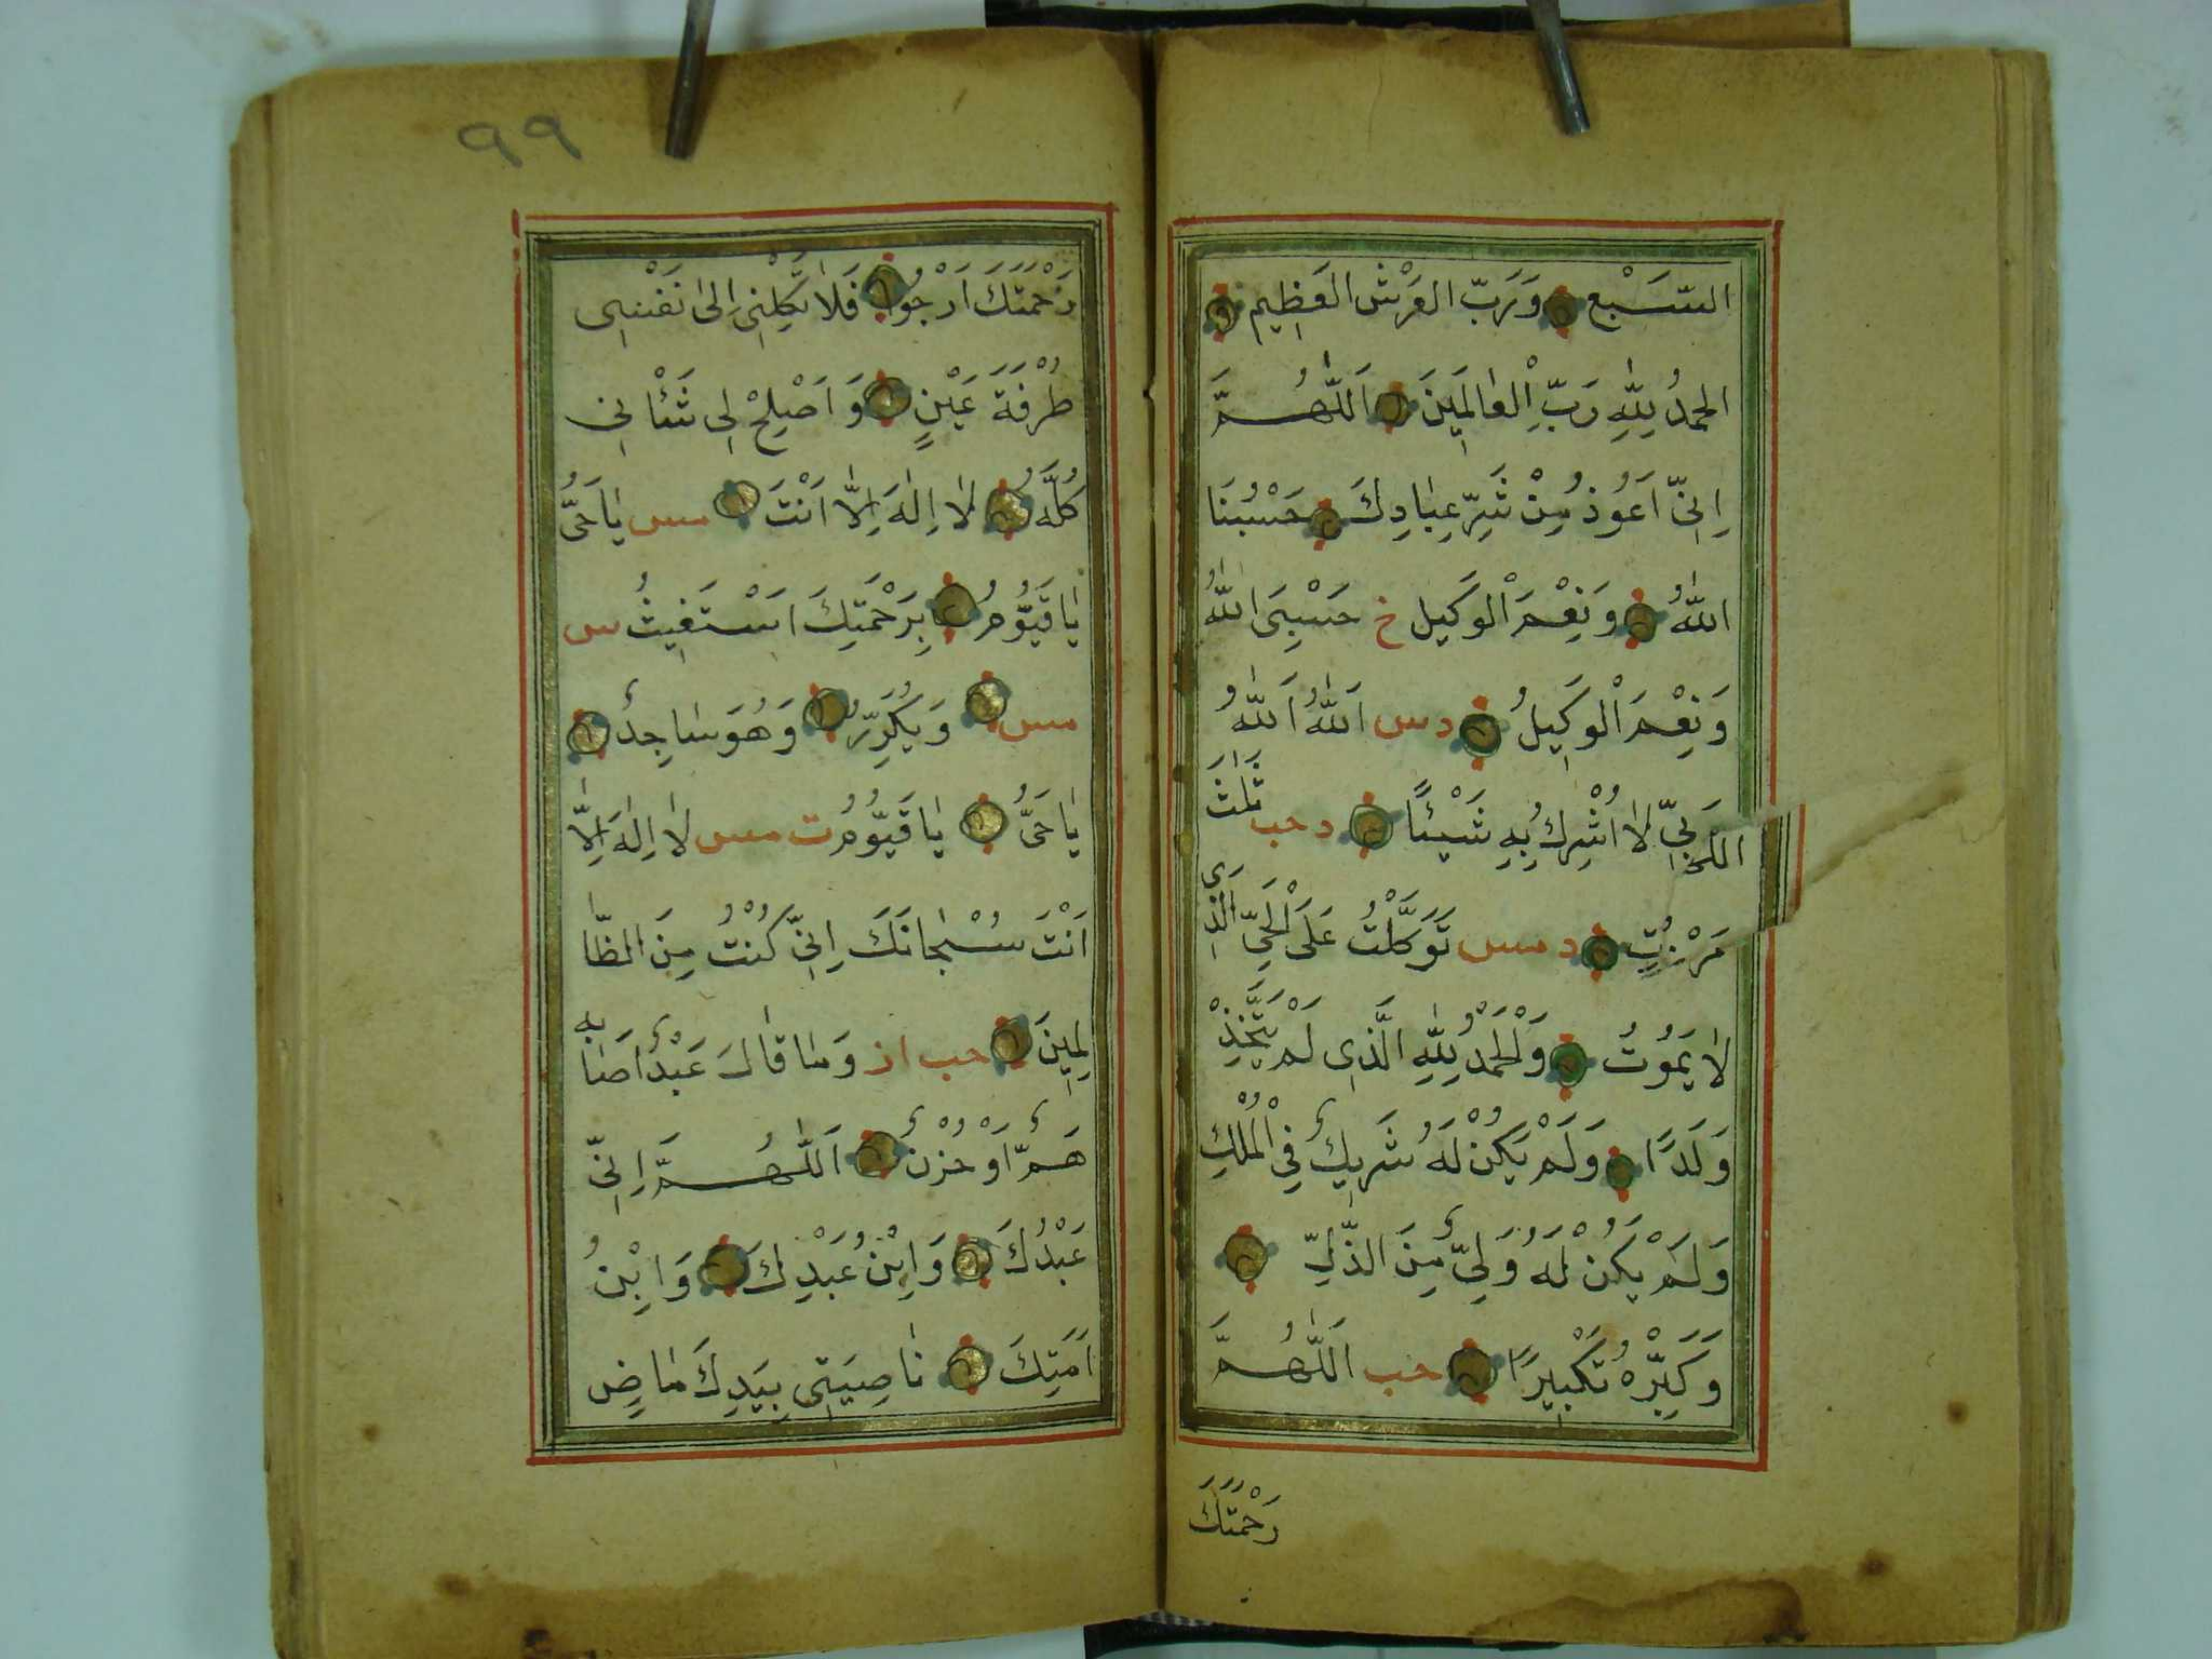 السَّبْعِ وَرَبِّ الْعَرْشِ الْعَظِيمِ
الحمدُ لِلّٰهِ رَبِّ الْعٰالَمِينَ اَللّٰهُمَّ
اِنّي اَعُوذُ مِنْ شَرِّ عِبٰادِكَ حَسْبُنَا
اللّٰهُ وَنِعْمَ الْوَكِيلُ خ حَسْبِيَ اللّٰهُ
وَنِعْمَ الْوَكِيلُ د س اَللّٰهُ اَللّٰهُ
رَبّي لٰا اُشْرِكُ بِهِ شَيْئًا د حب ثَلٰثَ
مَرّٰتٍ د مس تَوَكَّلْتُ عَلَى الْحَيِّ الَّذِي
لٰا يَمُوتُ وَالْحَمْدُ لِلّٰهِ الَّذِي لَمْ يَتَّخِذْ
وَلَدًا وَلَمْ يَكُنْ لَهُ شَرِيكٌ فِي الْمُلْكِ
وَلَمْ يَكُنْ لَهُ وَلِيٌّ مِنَ الذُّلِّ
وَكَبِّرْهُ تَكْبِيرًا حب اَللّٰهُمَّ
رَحْمَتَكَ
٩٩
رَحْمَتَكَ اَرْجُوا فَلٰا تَكِلْنِي اِلٰى نَفْسِي
طَرْفَةَ عَيْنٍ وَاَصْلِحْ لِي شَأْنِي
كُلَّهُ لٰا اِلٰهَ اِلّٰا اَنْتَ مس يٰا حَيُّ
يٰا قَيُّومُ بِرَحْمَتِكَ اَسْتَغِيثُ س
مس وَيُكَرِّرُ وَهُوَ سٰاجِدٌ
يٰا حَيُّ يٰا قَيُّومُ ت مس لٰا اِلٰهَ اِلّٰا
اَنْتَ سُبْحٰانَكَ اِنّي كُنْتُ مِنَ الظّٰا
لِمِينَ حب از وَمٰا قٰالَ عَبْدٌ اَصٰابَهُ
هَمٌّ اَوْ حُزْنٌ اَللّٰهُمَّ اِنّي
عَبْدُكَ وَابْنُ عَبْدِكَ وَابْنُ
اَمَتِكَ نٰاصِيَتِي بِيَدِكَ مٰاضٍ